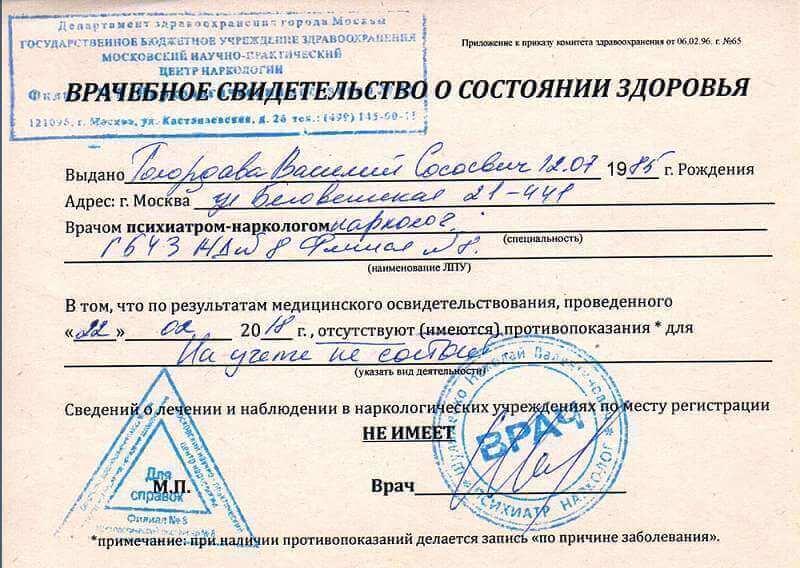 Департамент здравоохранения города Москвы
ГОСУДАРСТВЕННОЕ БЮДЖЕТНОЕ УЧРЕЖДЕНИЕ ЗДРАВООХРАНЕНИЯ
МОСКОВСКИЙ НАУЧНО-ПРАКТИЧЕСКИЙ
ЦЕНТР НАРКОЛОГИИ
121095, г. Москва, ул. Кастанаевская, д. 26 тел.: (499) 145-00-
Приложение к приказу комитета здравоохранения от 06.02.96. г. №65
ВРАЧЕБНОЕ СВИДЕТЕЛЬСТВО О СОСТОЯНИИ ЗДОРОВЬЯ
Выдано Василий Сосоевич 12.07 1985 г. Рождения
Адрес: г. Москва ул Беловежская 21-441
Врачом психиатром-наркологом нарколог.
(специальность)
Филиал №8.
(наименование ЛПУ)
В том, что по результатам медицинского освидетельствования, проведенного
«22» 02 2018 г., отсутствуют (имеются) противопоказания * для
На учете не состоит
(указать вид деятельности)
Сведений о лечении и наблюдении в наркологических учреждениях по месту регистрации
НЕ ИМЕЕТ
М.П. Врач
Для
справок
Филиал №8
Николай Валентинович
ВРАЧ
ПСИХИАТР НАРКОЛОГ
*примечание: при наличии противопоказаний делается запись «по причине заболевания».